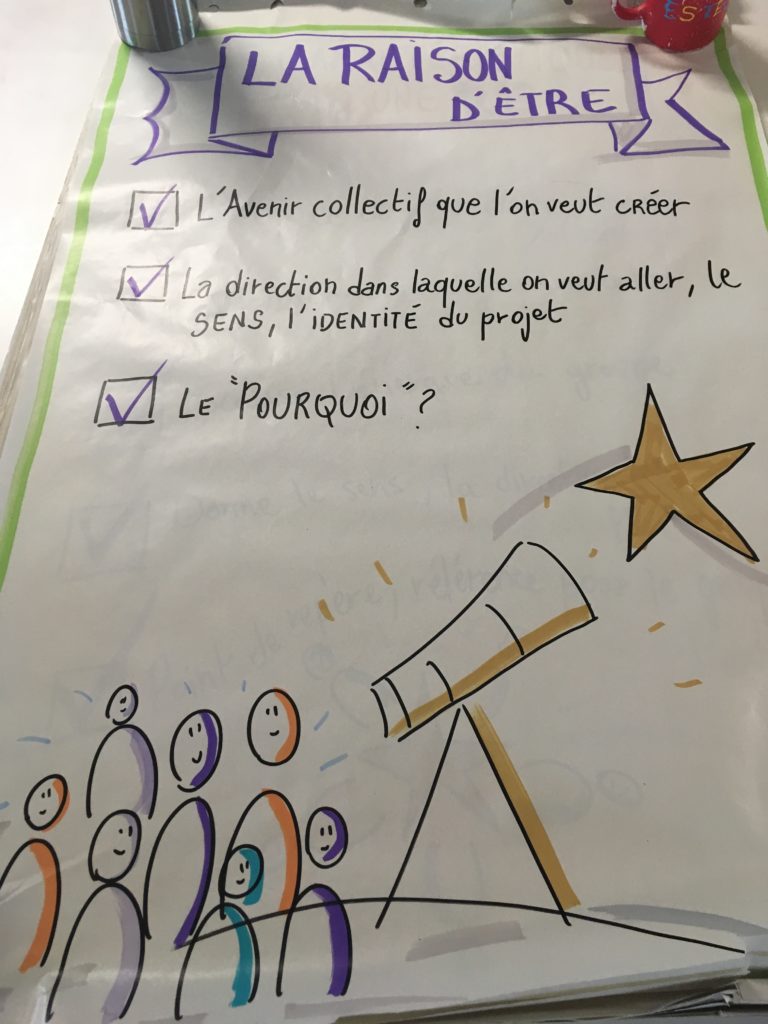 LA RAISON
D'ÊTRE
L'Avenir collectif que l'on veut créer
La direction dans laquelle on veut aller, le
SENS, l'IDENTITÉ du projet
LE "POURQUOI"?